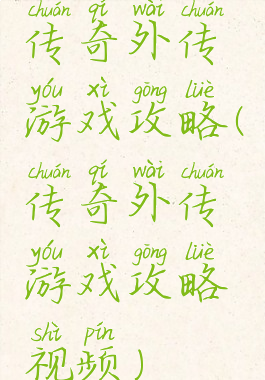 chuán qí wài chuán
传奇外传
yóu xì gōng lüè
游戏攻略(
chuán qí wài chuán
传奇外传
yóu xì gōng lüè
游戏攻略
shì pín
视频)